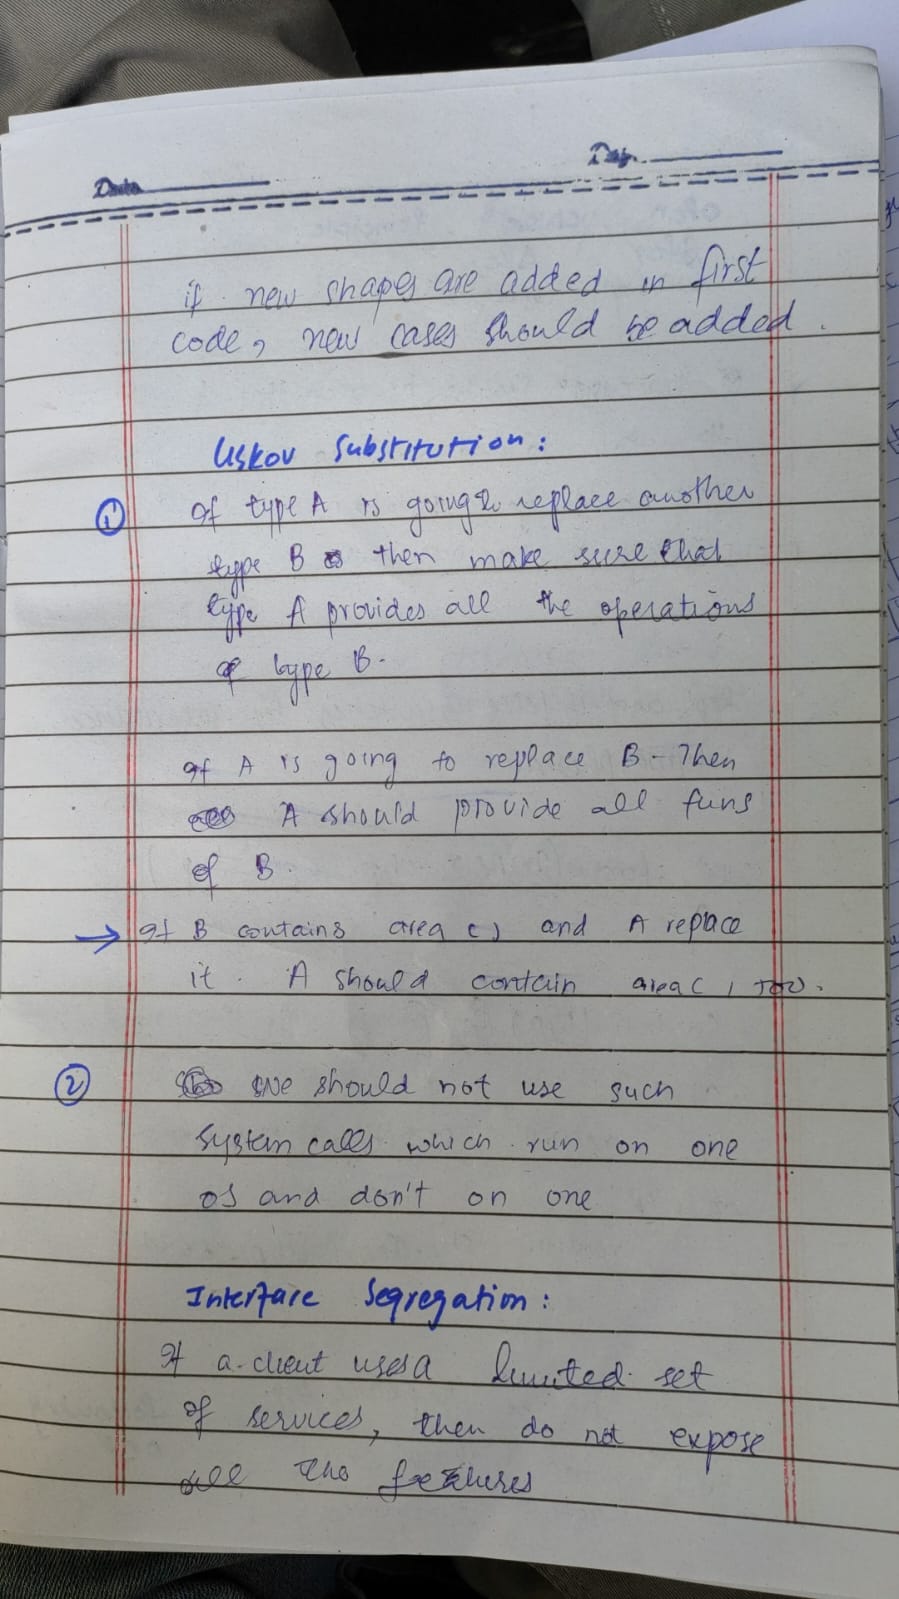 Date
Day
if new shapes are added in first
code, new cases should be added.
Liskov Substitution:
① If type A is going to replace another
type B then make sure that
type A provides all the operations
of type B.
If A is going to replace B - Then
A should provide all funs
of B.
→ If B contains area () and A replace
it. A should contain area() too.
② We should not use such
system calls which run on one
OS and don't on one
Interface Segregation:
If a client uses a limited set
of services, then do not expose
all the features